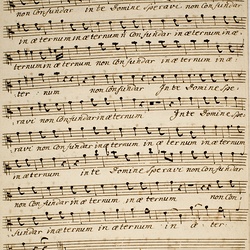 non Confundar in te Domine Speravi non Confundar
in æternum in æternum n Confundar in æternum in æ-
ternum in æternum non Confundar in æ
ter num non Confundar In te Domine Spe-
ravi non Confundar in æternum In te Domine Spe-
ravi non Confundar in æternum non Confundar in æternum
in æternum in te Domine Speravi non Confundar
non Confundar in æternum in æternum non Con-
fundar in æternum in æternum in æ ter